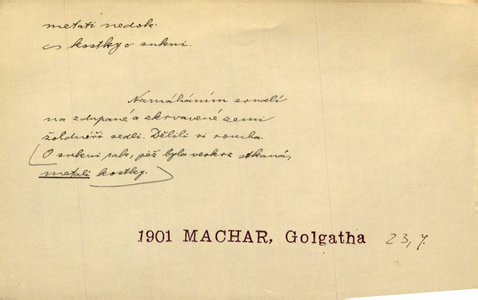 metati nedok.
kostky o sukni.
Namáháním zemdlí
na zdupané a skrvavené zemi
žoldnéři sedli. Dělili si roucha.
O sukni však, jež byla veskrz tkaná,
metali kostky.
1901 MACHAR, Golgatha 23,7.